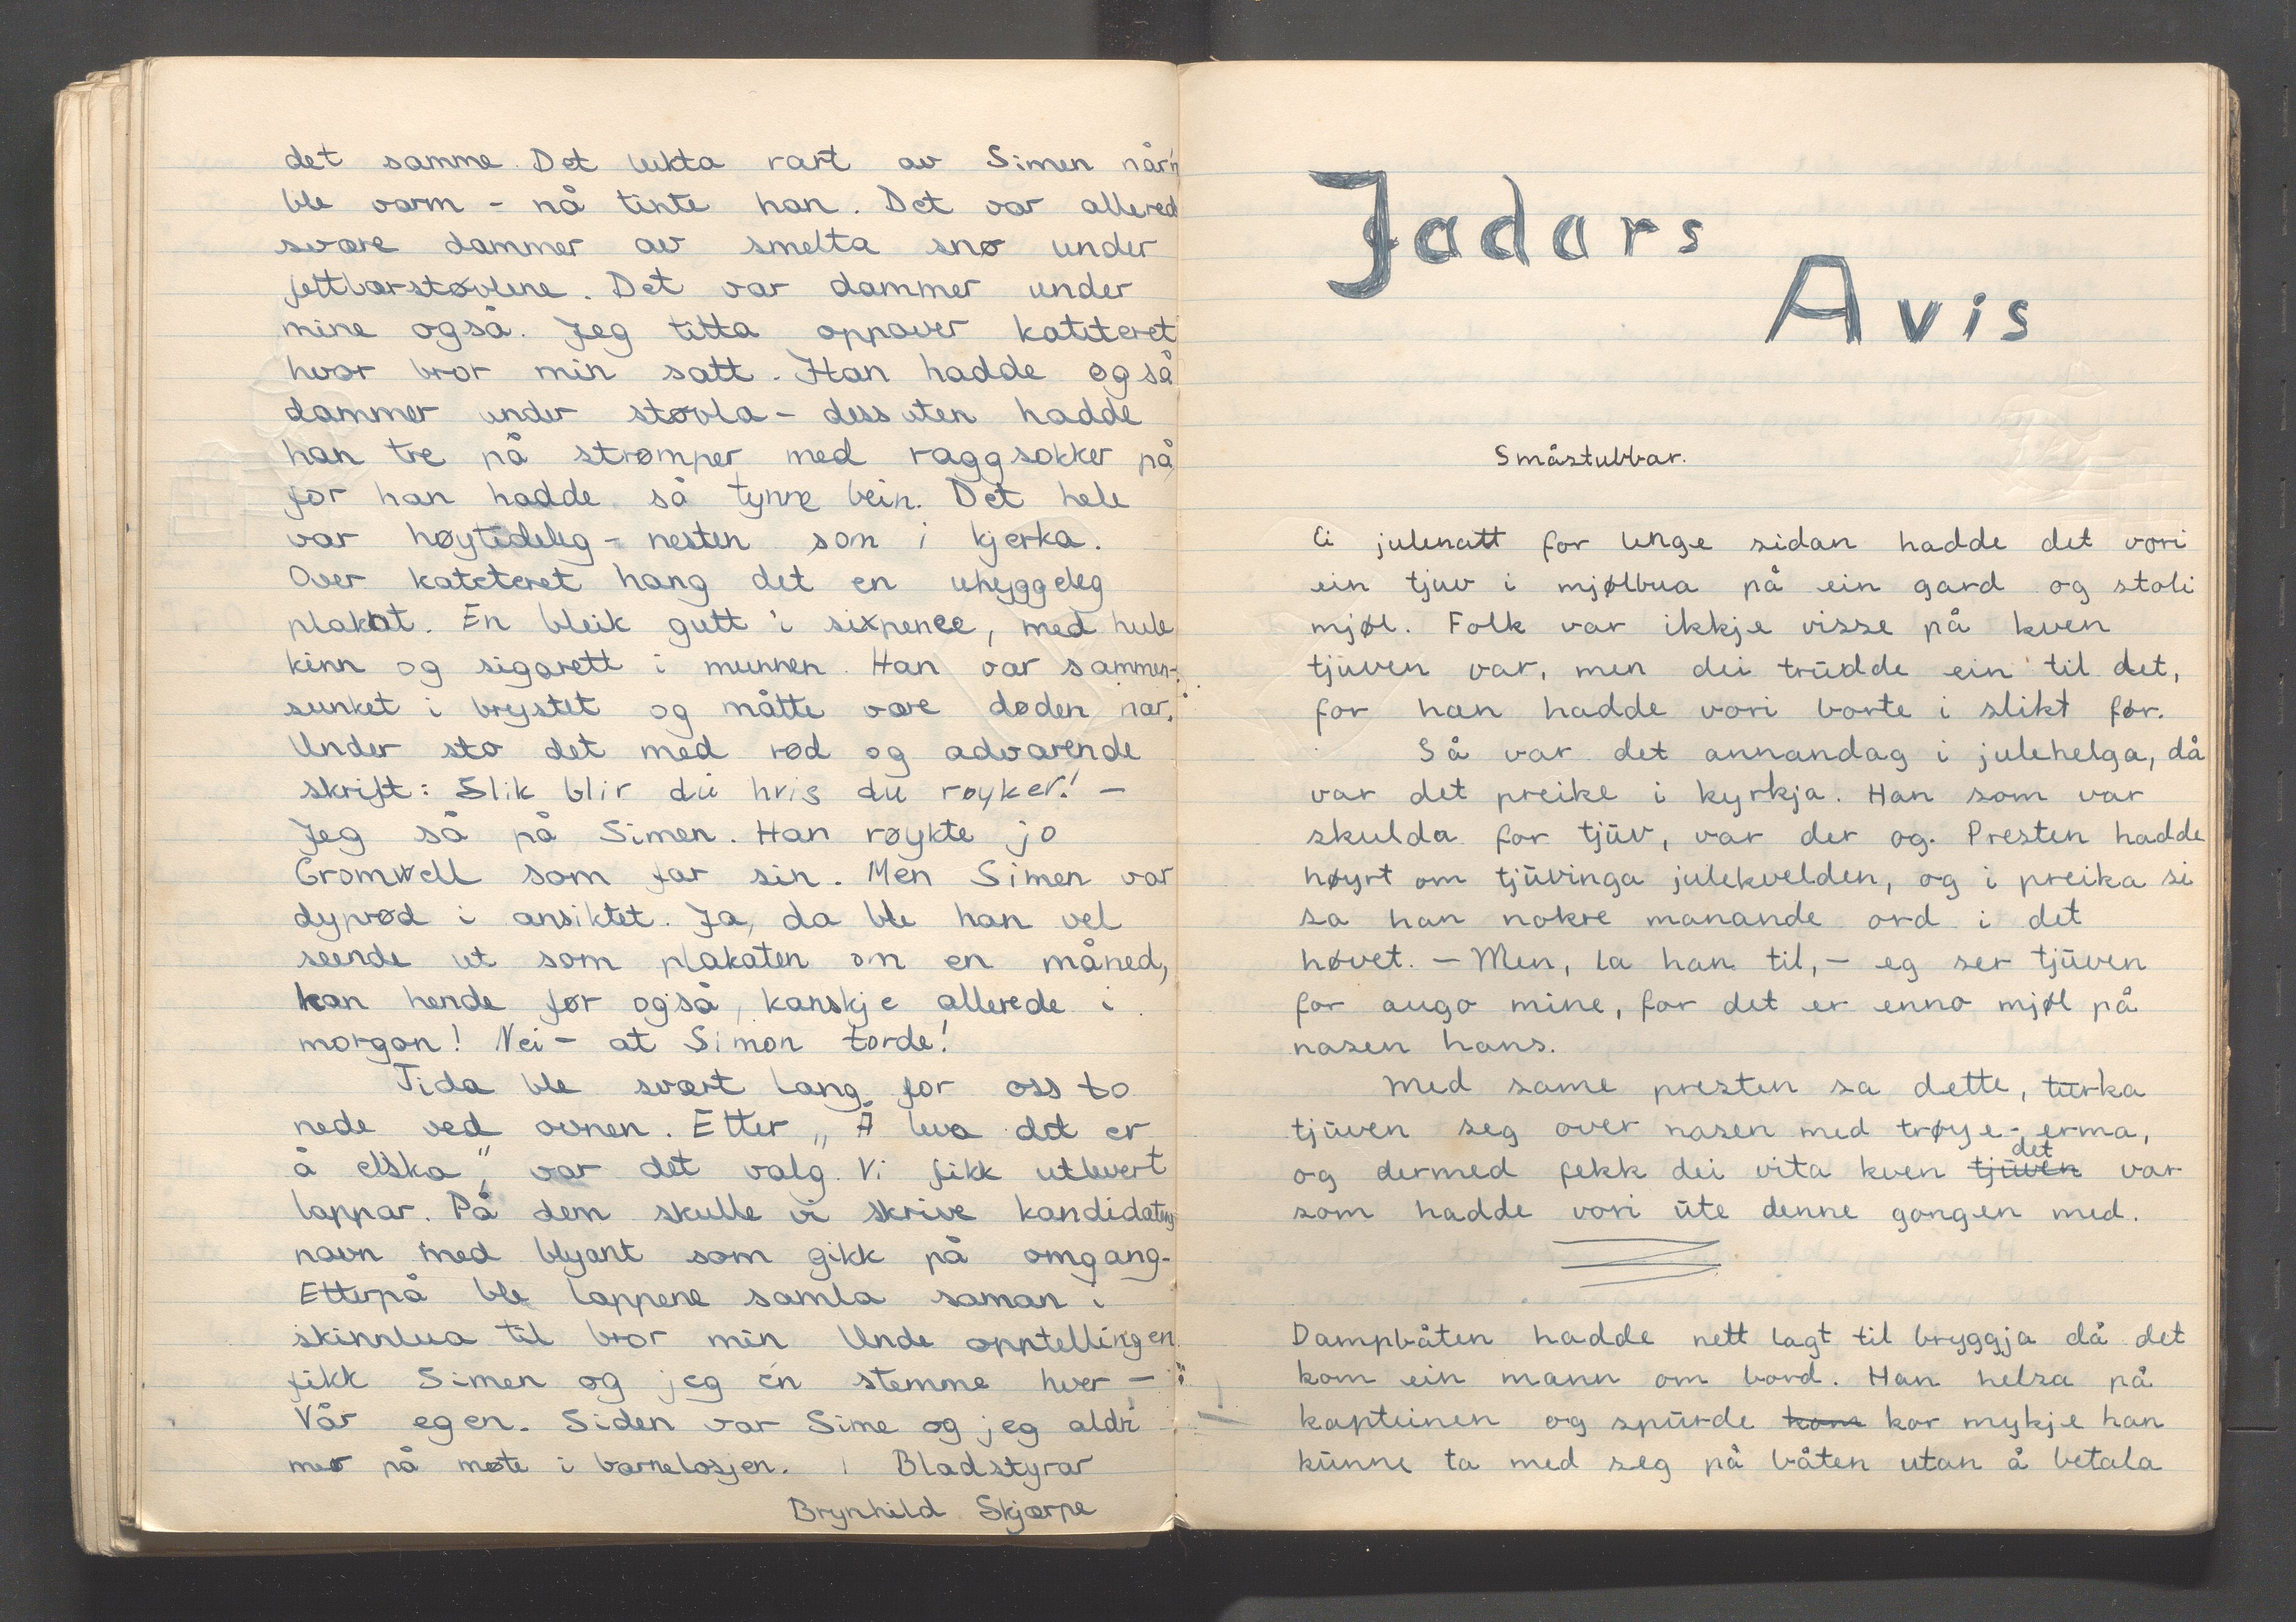 det samme. Det lukta rart av Simen når'n
ble varm - nå tinte han. Det var allered
svære dammer av smelta snø under
fettlærstøvlene. Det var dammer under
mine også. Jeg titta oppover kateteret
hvor bror min satt. Han hadde også
dammer under støvla - dessuten hadde
han tre på strømper med raggsokker på
for han hadde så tynne bein. Det hele
var høytideleg - nesten som i kjerka.
Over kateteret hang det en uhyggeleg
plakat. En bleik gutt i sixpence, med hule
kinn og sigarett i munnen. Han var sammen-
sunket i brystet og måtte være døden nær.
Under sto det med rød og advarende
skrift: Slik blir du hvis du røyker! -
Jeg så på Simen. Han røykte jo
Cromwell som far sin. Men Simen var
dyprød i ansiktet. Ja, da ble han vel
seende ut som plakaten om en måned,
kan hende før også, kanskje allerede i
morgon! Nei - at Simon torde!
Tida ble svært lang for oss to
nede ved ovnen. Etter „Å leva det er
å elska", var det valg. Vi fikk utlevert
lappar. På dem skulle vi skrive kandidatens
navn med blyant som gikk på omgang.
Etterpå ble lappene samla saman i
skinnlua til bror min. Unde opptellingen
fikk Simen og jeg én stemme hver -:
Vår egen. Siden var Sime og jeg aldri
mer på møte i barnelosjen. Bladstyrar
Brynhild Skjærpe
Jadars
Avis
Småstubbar.
Ei julenatt for lenge sidan hadde det vori
ein tjuv i mjølbua på ein gard og stoli
mjøl. Folk var ikkje visse på kven
tjūven var, men dei trūdde ein til det,
for han hadde vori borte i slikt før.
Så var det annandag i julehelga, då
var det preike i kyrkja. Han som var
skulda for tjūv, var der og. Presten hadde
høyrt om tjūvinga julekvelden, og i preika si
sa han nokre manande ord i det
høvet. - Men, la han til, - eg ser tjūven
for augo mine, for det er enno mjøl på
nasen hans.
Med same presten sa dette, tūrka
tjūven seg over nasen med trøye-erma,
og dermed fekk dei vita kven tjūven det var
som hadde vori ūte denne gongen med.
Dampbåten hadde nett lagt til bryggja då det
kom ein mann om bord. Han helsa på
kapteinen og spūrde kom kor mykje han
kūnne ta med seg på båten utan å betala